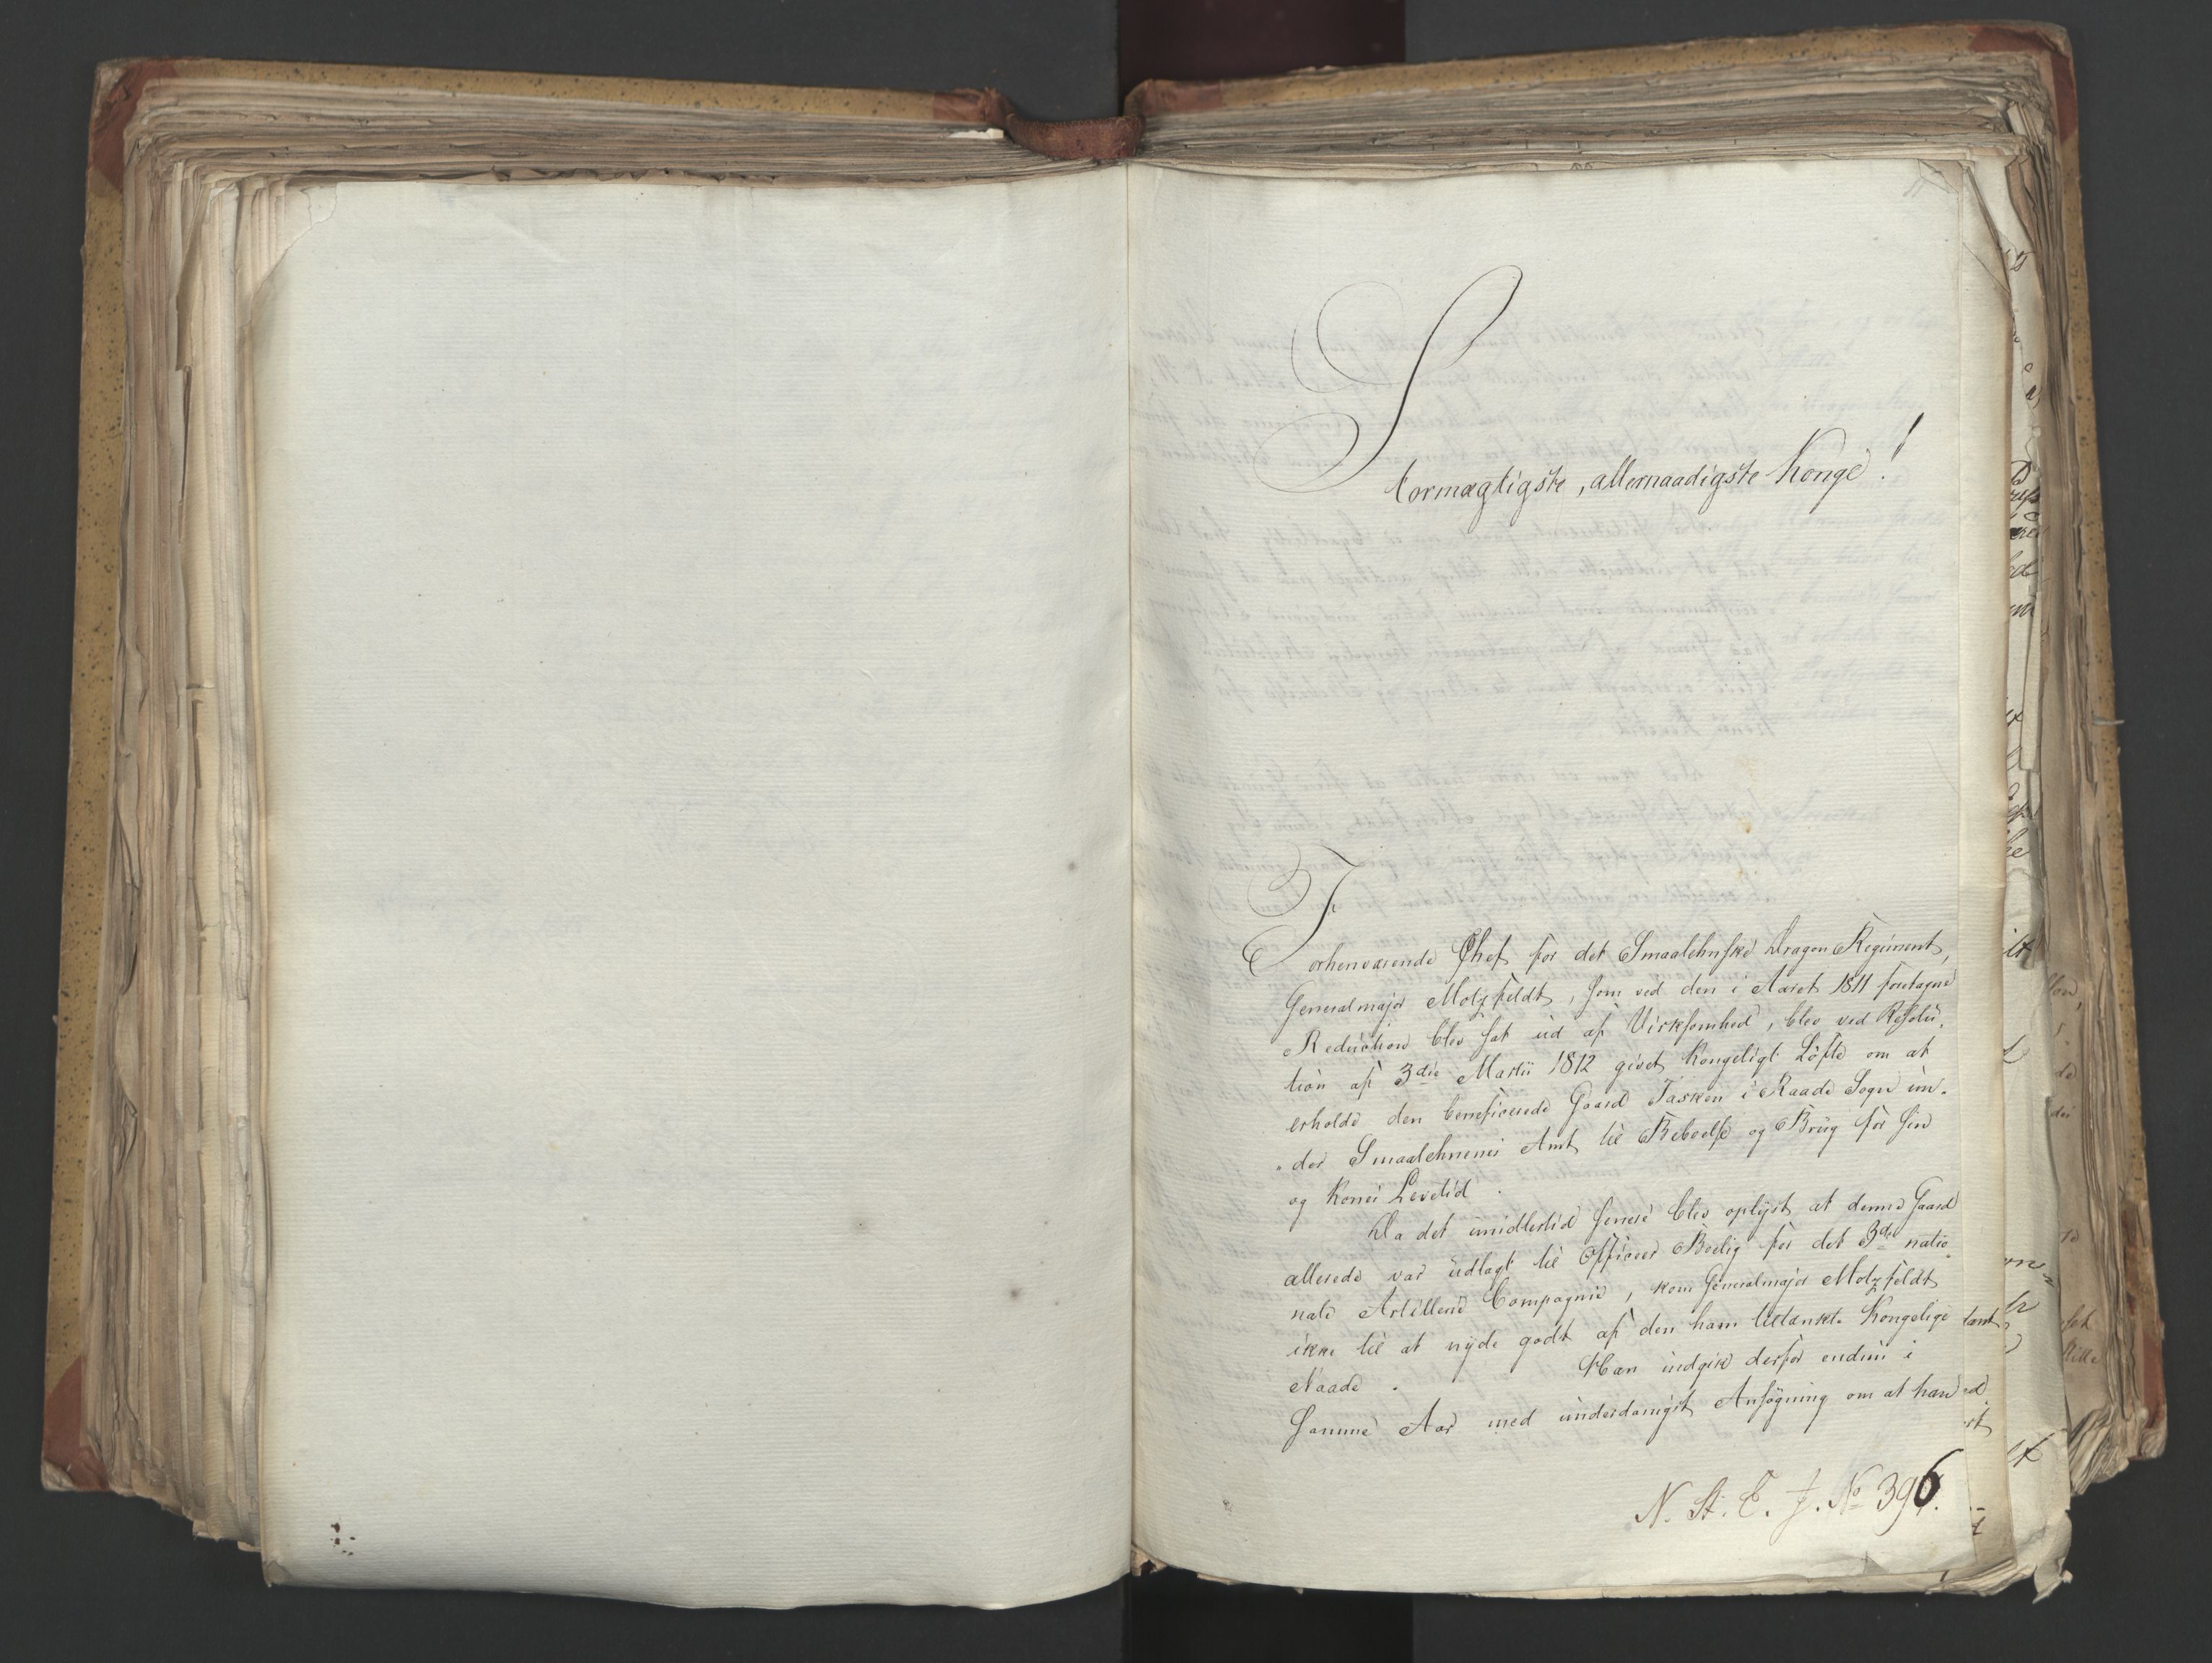 Stormægtigste, allernaadigste Konge!
Forhenværende Chef for det Smaalehnske Dragon Regiment,
Generalmajor Motzfeldt, som ved den i Aaret 1811 foretagne
Reduction blev sat ud af Virksomhed, blev ved Resolu-
tion af 3die Martii 1812 givet Kongeligt Löfte om at
erholde den beneficerede Gaard Tasken i Raade Sogn un-
der Smaalehnenes Amt til Beboelse og Brug for sin
og Kones Levetid.
Da det imidlertid senere blev oplyst at denne Gaard
allerede var udlagt til Officeer Boelig for det 3die natio-
nale Artillerie Compagnie, kom Generalmajor Motzfeldt
ikke til at nyde godt af den ham tiltænkte Kongelige
Naade. Han indgik derfor endnu i
samme Aar med underdanigst Ansögning om at han
N. St. C. J. No 396.